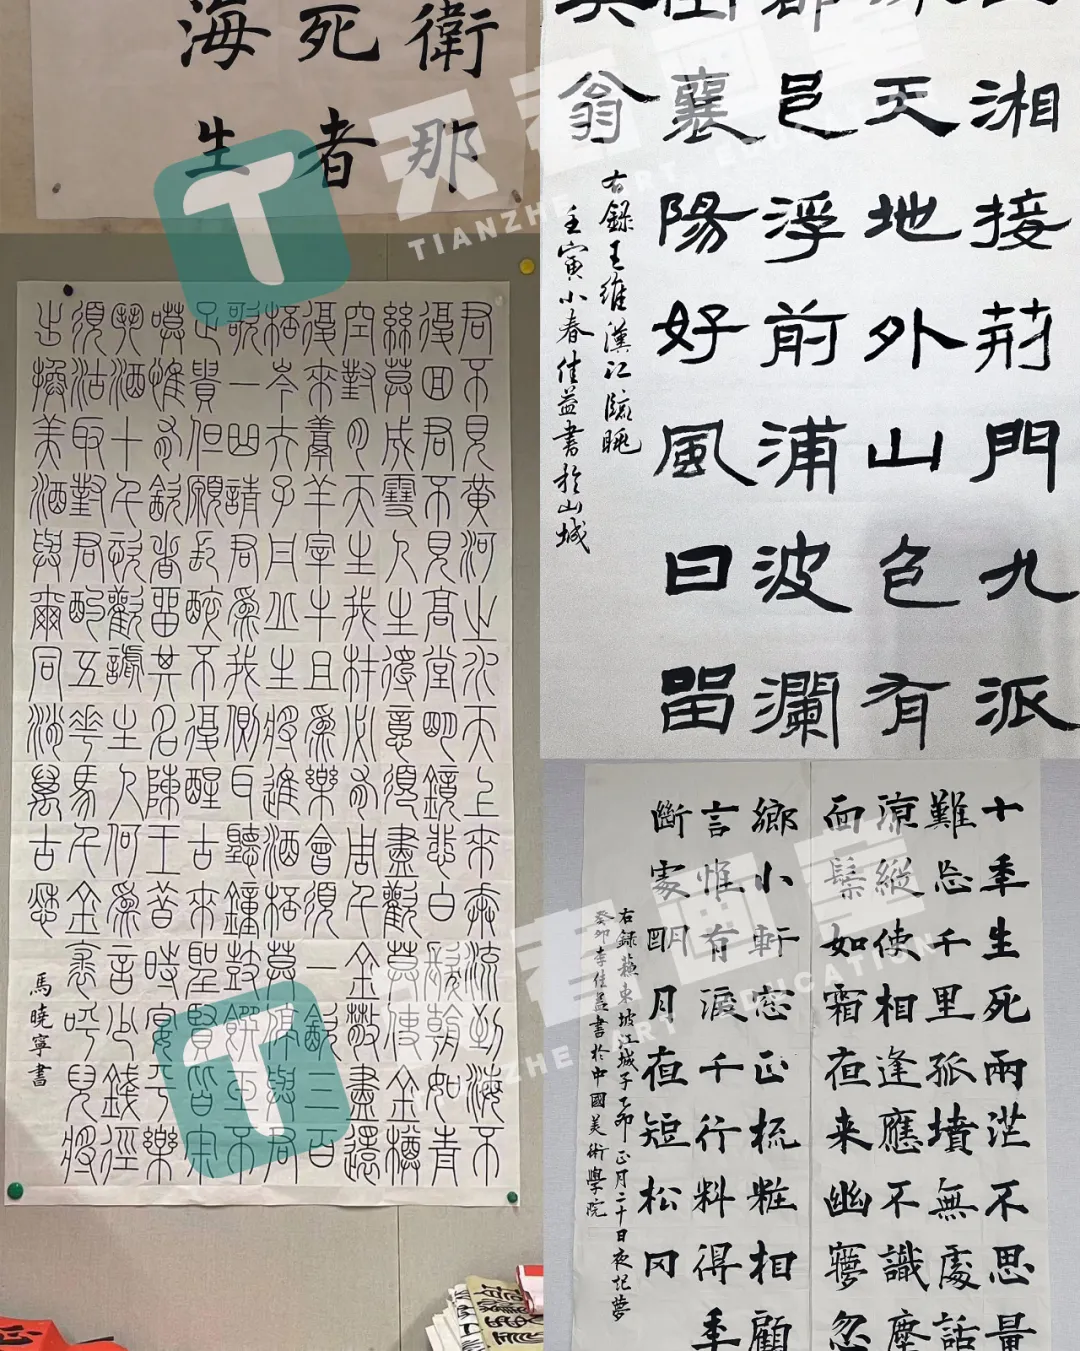 衛那
死者
海生
天者画室
TIANZHE ART EDUCATION
湘接荊門九派
天地外山色有
邑浮前浦波瀾
襄陽好風日留
翁
右錄王維漢江臨眺
壬寅小春佳益書於山城
君不見黃河之水天上來奔流到海不
復回君不見高堂明鏡悲白髮朝如青
絲莫成雪人生得意須盡歡莫使金樽
空對月天生我材必有用千金散盡還
復來烹羊宰牛且為樂會須一飲三百
杯岑夫子丹丘生將進酒杯莫停與君
歌一曲請君為我側耳聽鐘鼓饌玉不
足貴但願長醉不復醒古來聖賢皆寂
寞惟有飲者留其名陳王昔時宴平樂
斗酒十千恣歡謔主人何為言少錢徑
須沽取對君酌五花馬千金裘呼兒將
出換美酒與爾同消萬古愁
馬曉寧書
十年生死兩茫不思量
難忘千里孤墳無處話
涼縱使相逢應不識塵
面鬢如霜夜来幽夢忽
鄉小軒窓正梳粧相顧
言惟有淚千行料得年
斷處明月夜短松冈
右錄蘇東坡江城子乙卯正月二十日夜記夢
癸卯李佳益書於中國美術學院
天者画室
TIANZHE ART EDUCATION